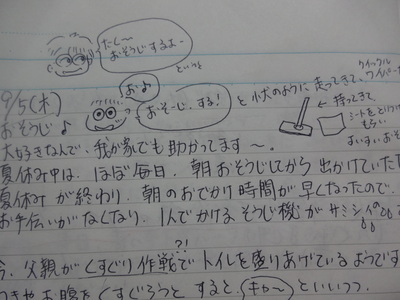 たし〜
おそうじするよー
というと
おぉ
おそーじ、する!
と小犬のように走ってきて、
クイックル
ワイパー
持ってきて
シートをとりつけ
もらい
9/5(木)
おそうじ♪
大好きなんで、我が家でも助かってます〜。
夏休み中は、ほぼ毎日、朝おそうじしてから出かけていた
夏休みが終わり、朝のおでかけ時間が早くなったので、
お手伝いがなくなり、1人でかけるそうじ機がサミシイ
?!
今、父親がくすぐり作戦でトイレを盛りあげているようです
お腹をくすぐろうとすると、きゃ〜といいつつ